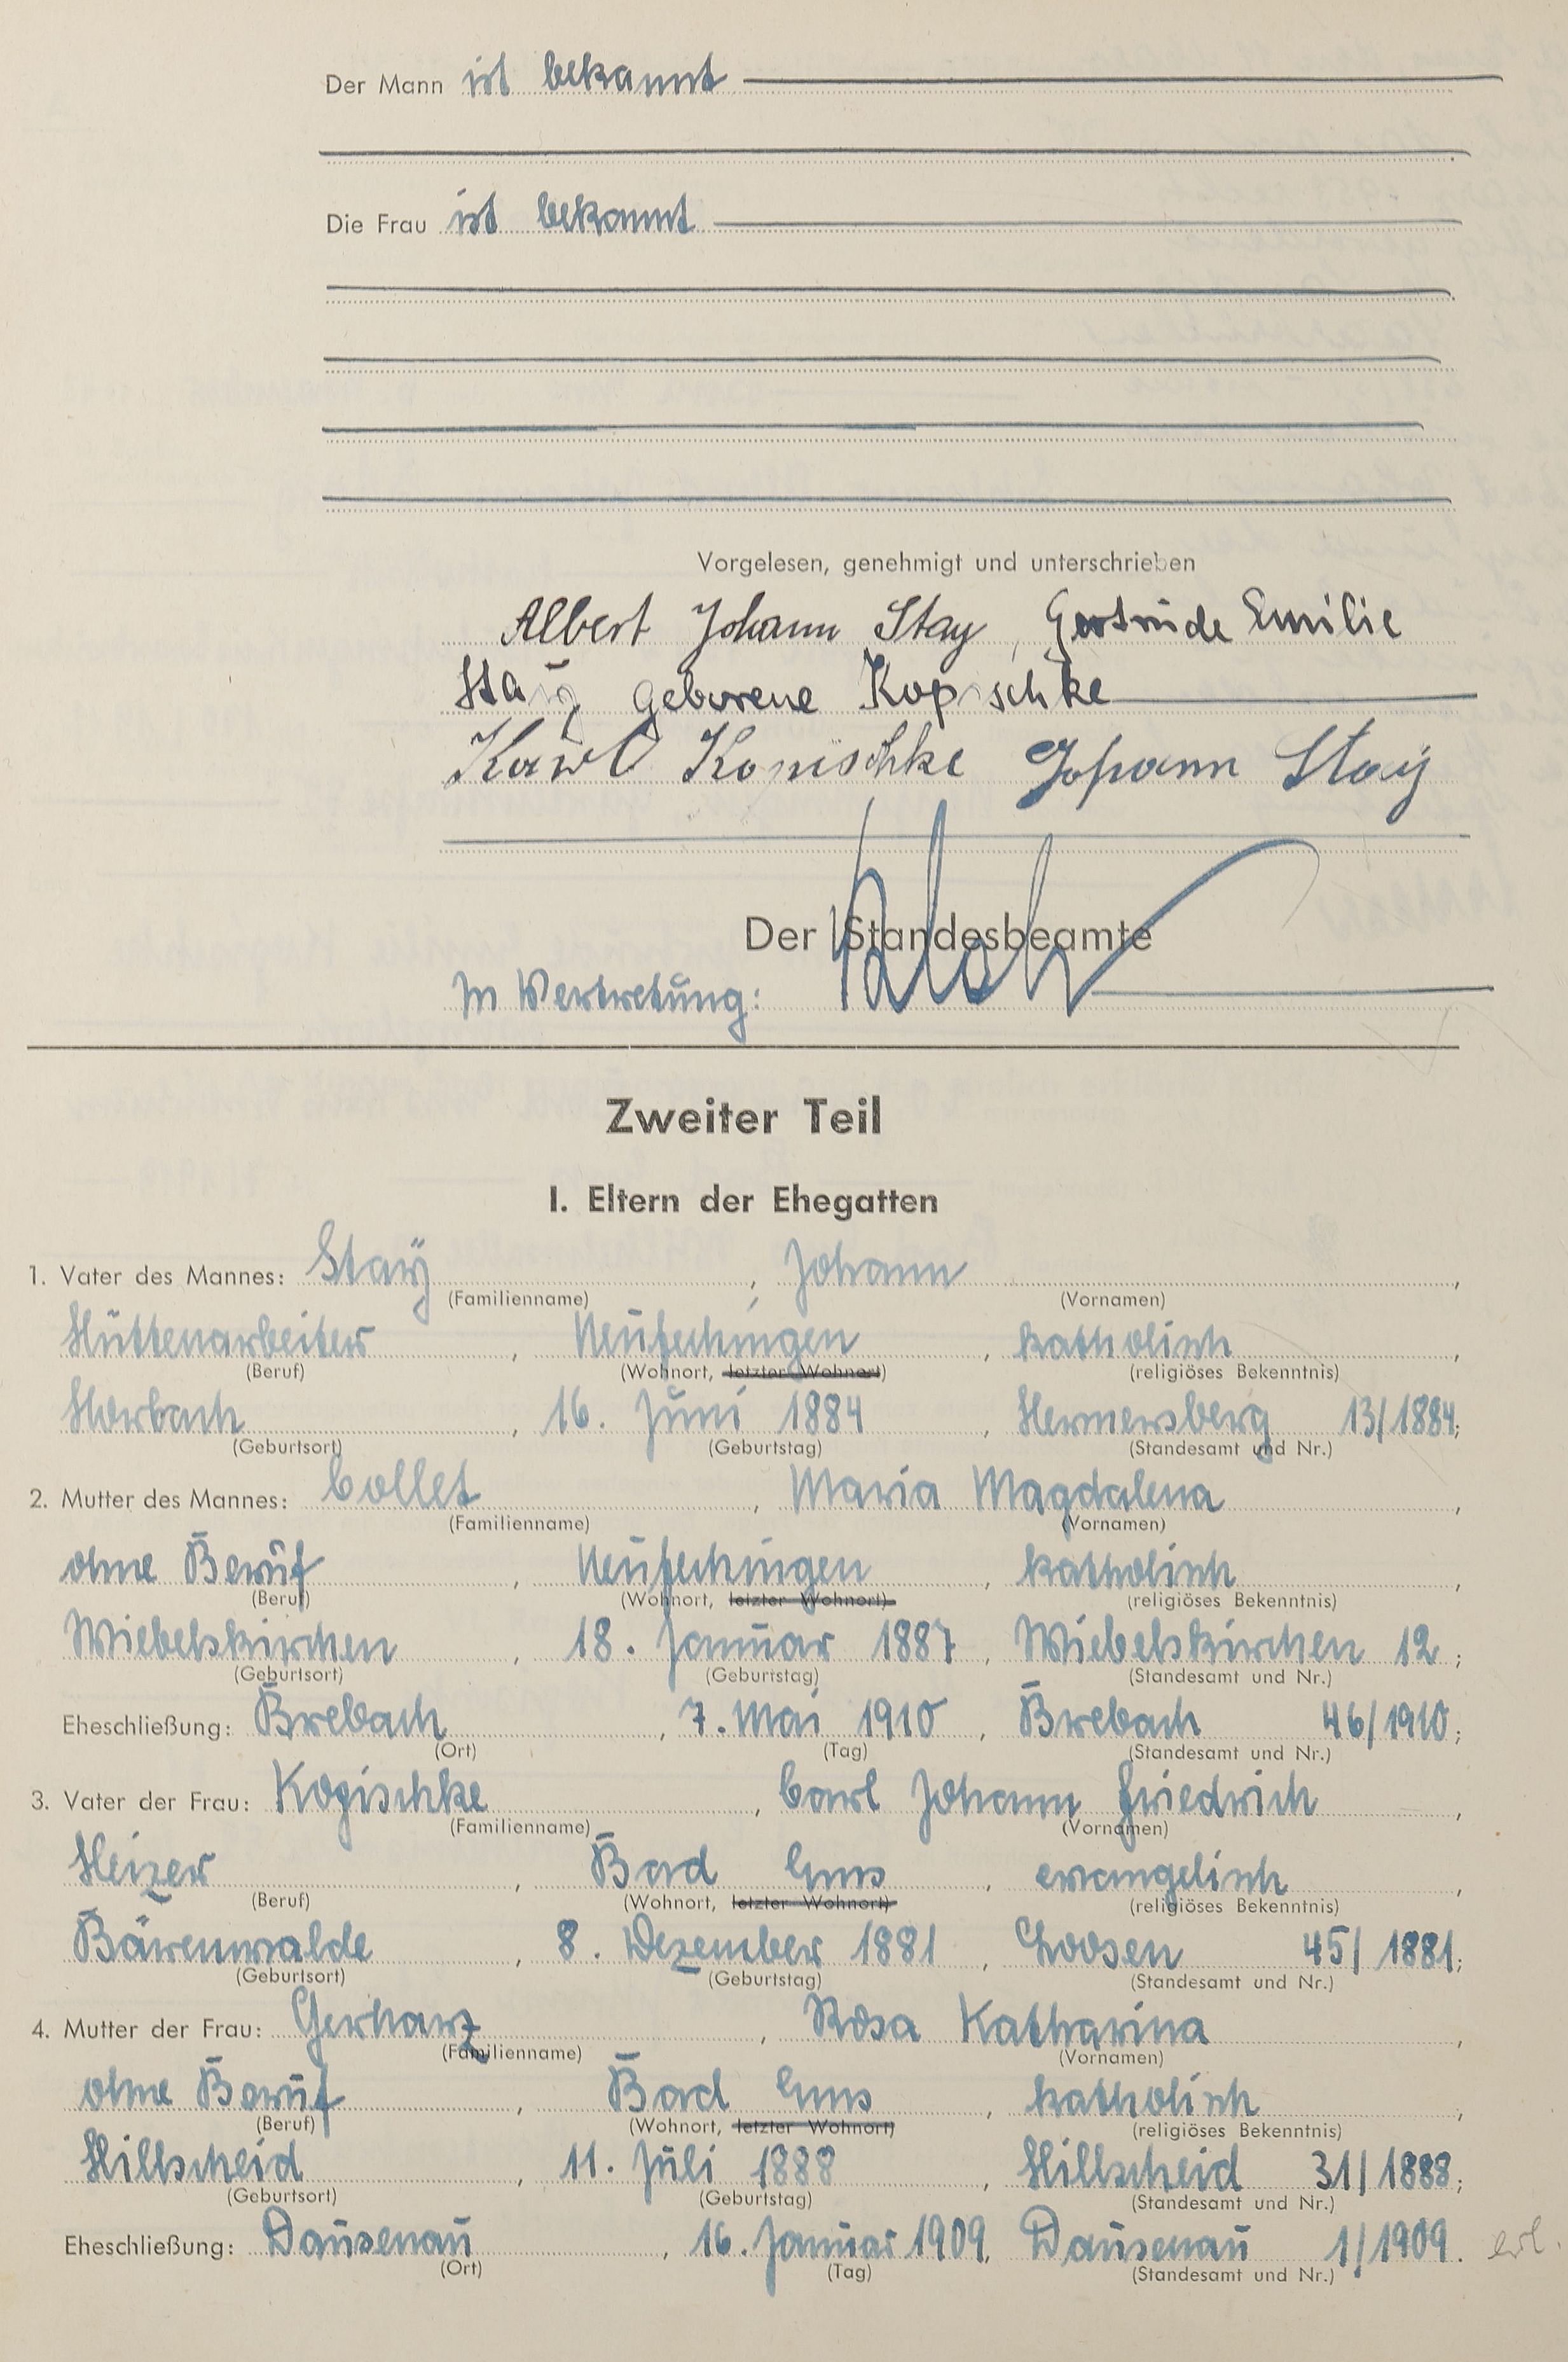 Der Mann ist bekannt
Die Frau ist bekannt
Vorgelesen, genehmigt und unterschrieben
Albert Johann Stay, Gertrude Emilie
Staÿ geborene Kopischke
Karl Kopischke Johann Staÿ
Der Standesbeamte
In Vertretung:
Zweiter Teil
I. Eltern der Ehegatten
1. Vater des Mannes: Staÿ, Johann,
(Familienname) (Vornamen)
Hüttenarbeiter, Neufechingen, katholisch,
(Beruf) (Wohnort, letzter Wohnort) (religiöses Bekenntnis)
Horbach, 16. Juni 1884, Hermersberg 13/1884;
(Geburtsort) (Geburtstag) (Standesamt und Nr.)
2. Mutter des Mannes: Collet, Maria Magdalena,
(Familienname) (Vornamen)
ohne Beruf, Neufechingen, katholisch,
(Beruf) (Wohnort, letzter Wohnort) (religiöses Bekenntnis)
Wiebelskirchen, 18. Januar 1887, Wiebelskirchen 12;
(Geburtsort) (Geburtstag) (Standesamt und Nr.)
Eheschließung: Brebach, 7. Mai 1910, Brebach 46/1910;
(Ort) (Tag) (Standesamt und Nr.)
3. Vater der Frau: Kopischke, Carl Johann Friedrich,
(Familienname) (Vornamen)
Heizer, Bad Ems, evangelisch,
(Beruf) (Wohnort, letzter Wohnort) (religiöses Bekenntnis)
Bärenwalde, 8. Dezember 1881, Loosen 45/1881;
(Geburtsort) (Geburtstag) (Standesamt und Nr.)
4. Mutter der Frau: Gerharz, Rosa Katharina,
(Familienname) (Vornamen)
ohne Beruf, Bad Ems, katholisch,
(Beruf) (Wohnort, letzter Wohnort) (religiöses Bekenntnis)
Hillscheid, 11. Juli 1888, Hillscheid 31/1888;
(Geburtsort) (Geburtstag) (Standesamt und Nr.)
Eheschließung: Dausenau, 16. Januar 1909, Dausenau 1/1909. erl.
(Ort) (Tag) (Standesamt und Nr.)